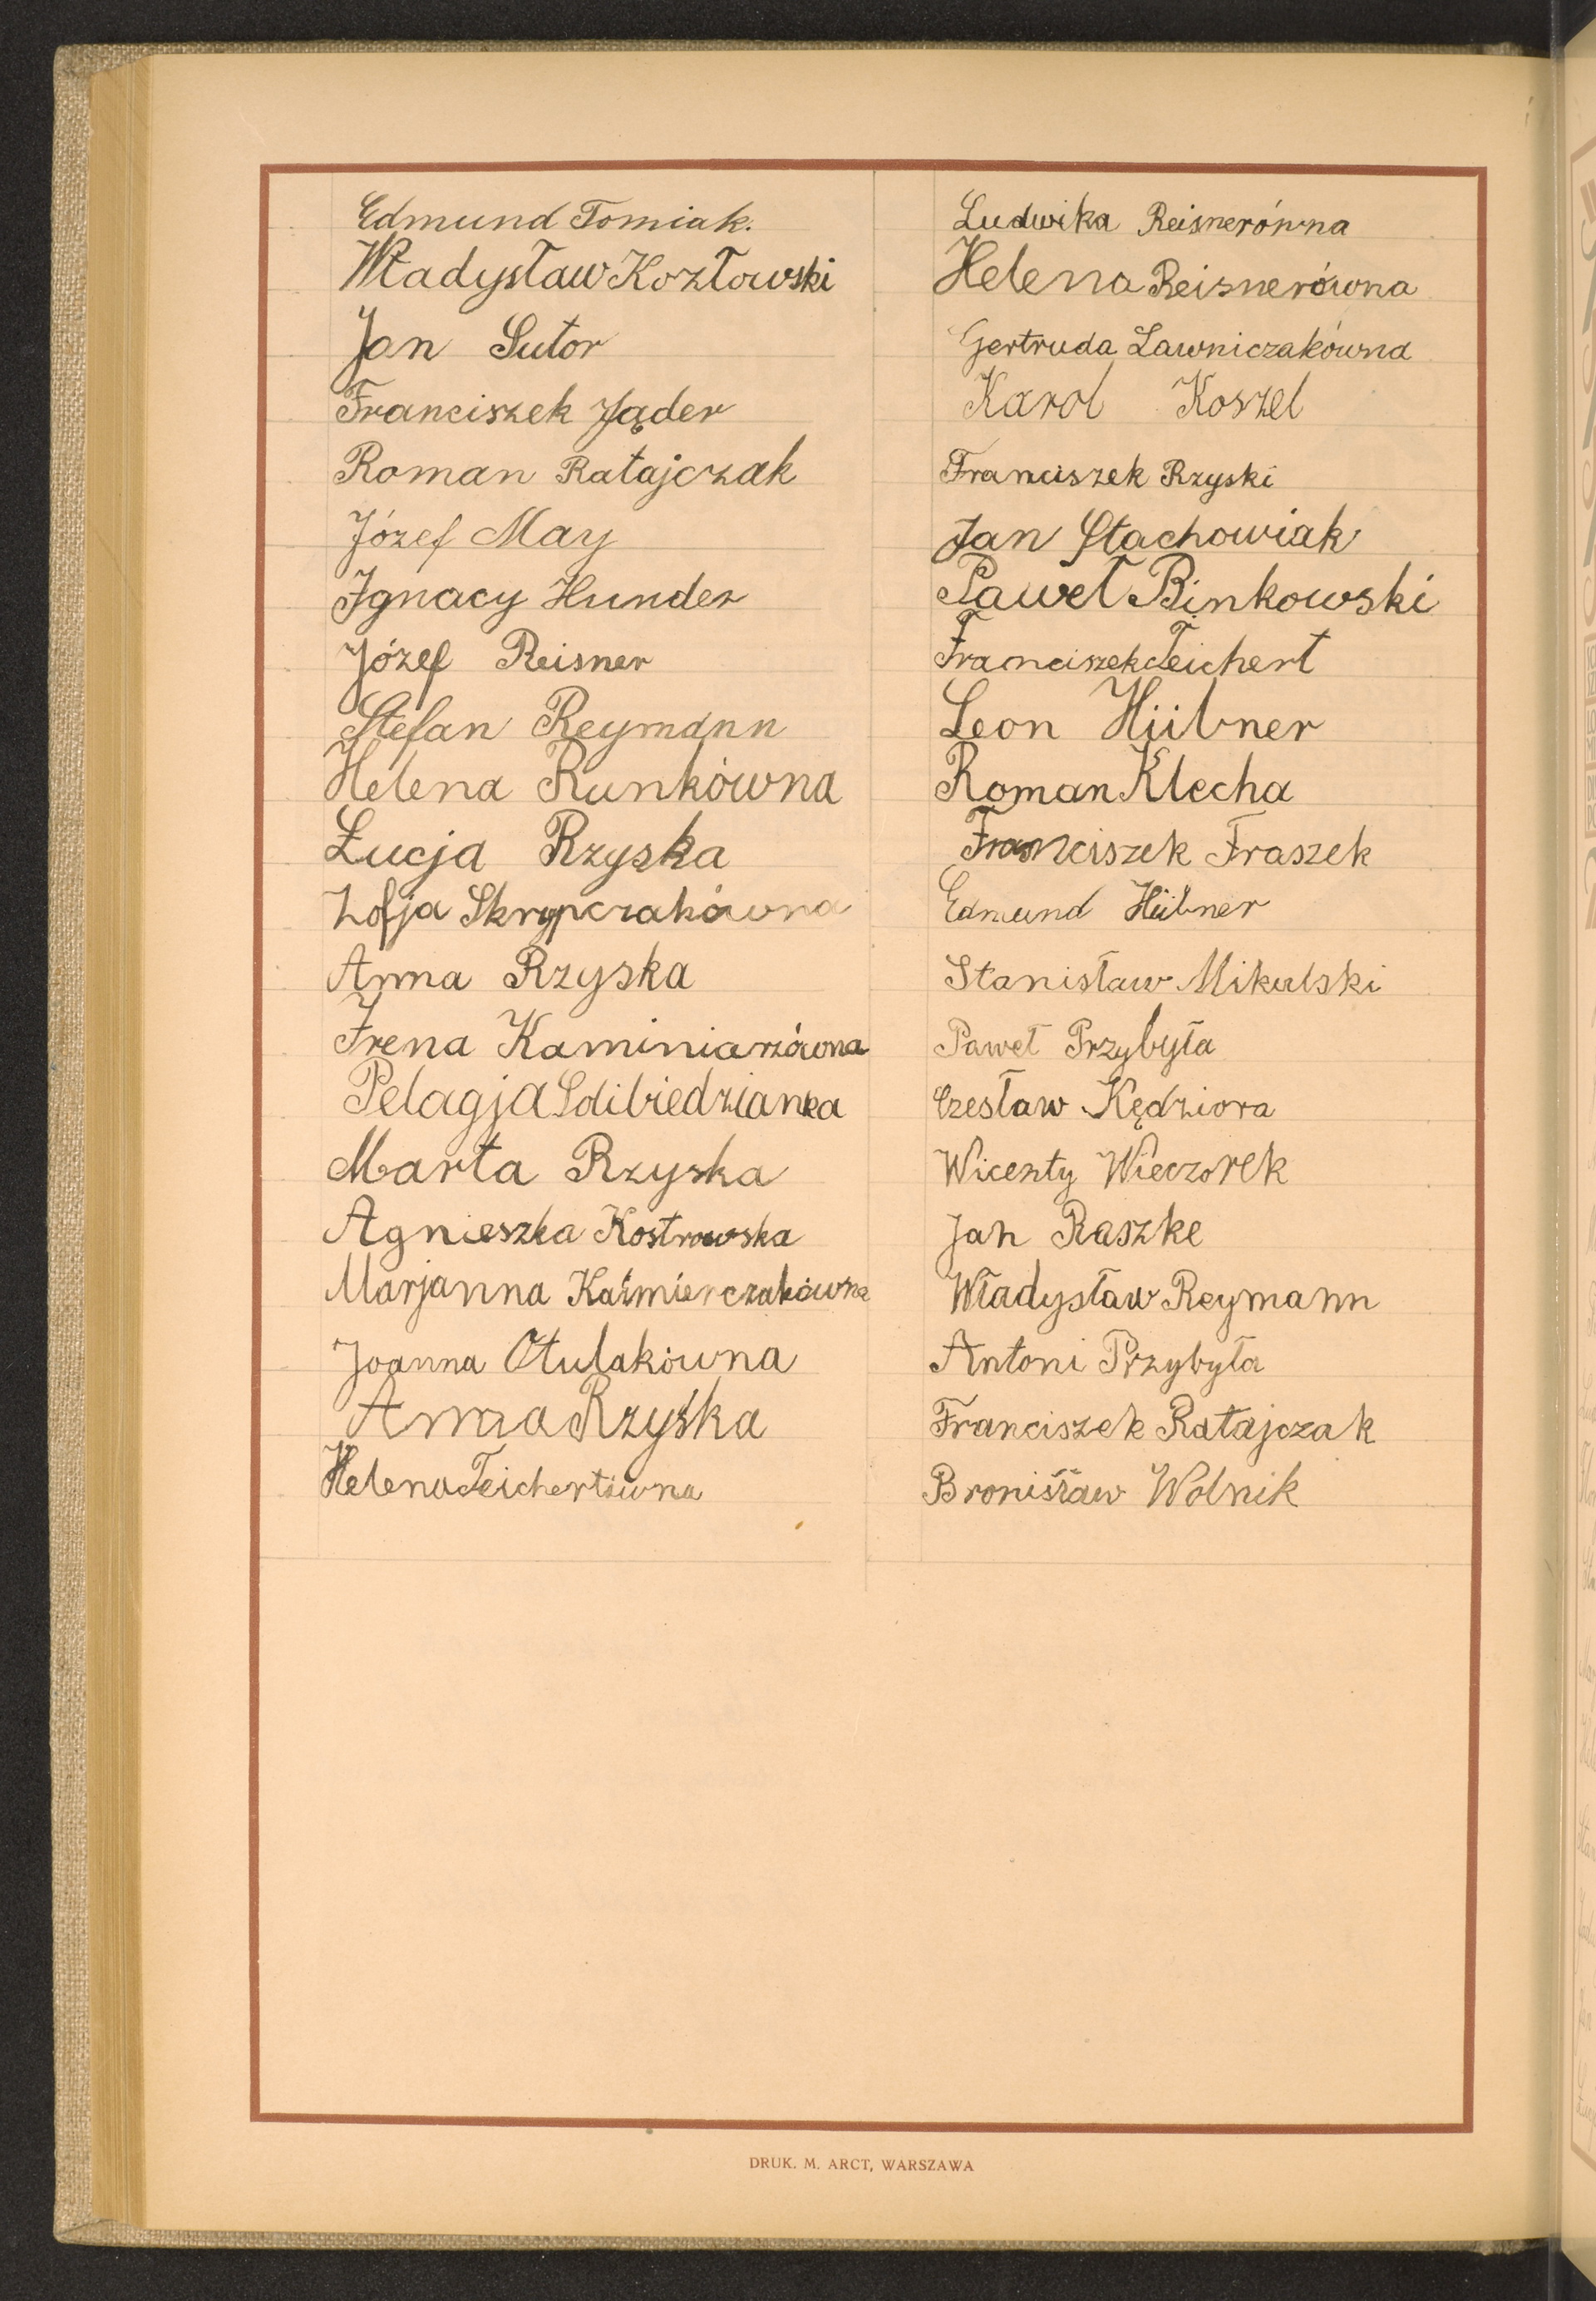 Edmund Tomiak.
Władysław Kozłowski
Jan Sutor
Franciszek Jąder
Roman Ratajczak
Józef May
Ignacy Hunder
Józef Reisner
Stefan Reymann
Helena Runkówna
Łucja Rzyska
Zofja Skrypczakówna
Anna Rzyska
Irena Kaminiarzówna
Pelagja
Marta Rzyska
Agnieszka Kostrowska
Marjanna Kaźmierczakówna
Joanna Otulakówna
Anna Rzyska
Helena Teichertówna
Ludwika Reisnerówna
Helena Reisnerówna
Gertruda Ławniczakówna
Karol Koszel
Franciszek Rzyski
Jan Stachowiak
Paweł Binkowski
Franciszek Teichert
Leon Hübner
Roman Klecha
Franciszek Fraszek
Edmund Hübner
Stanisław Mikulski
Paweł Przybyła
Czesław Kędziora
Wicenty Wieczorek
Jan Raszke
Władysław Reymann
Antoni Przybyła
Franciszek Ratajczak
Bronisław Wolnik
DRUK. M. ARCT, WARSZAWA